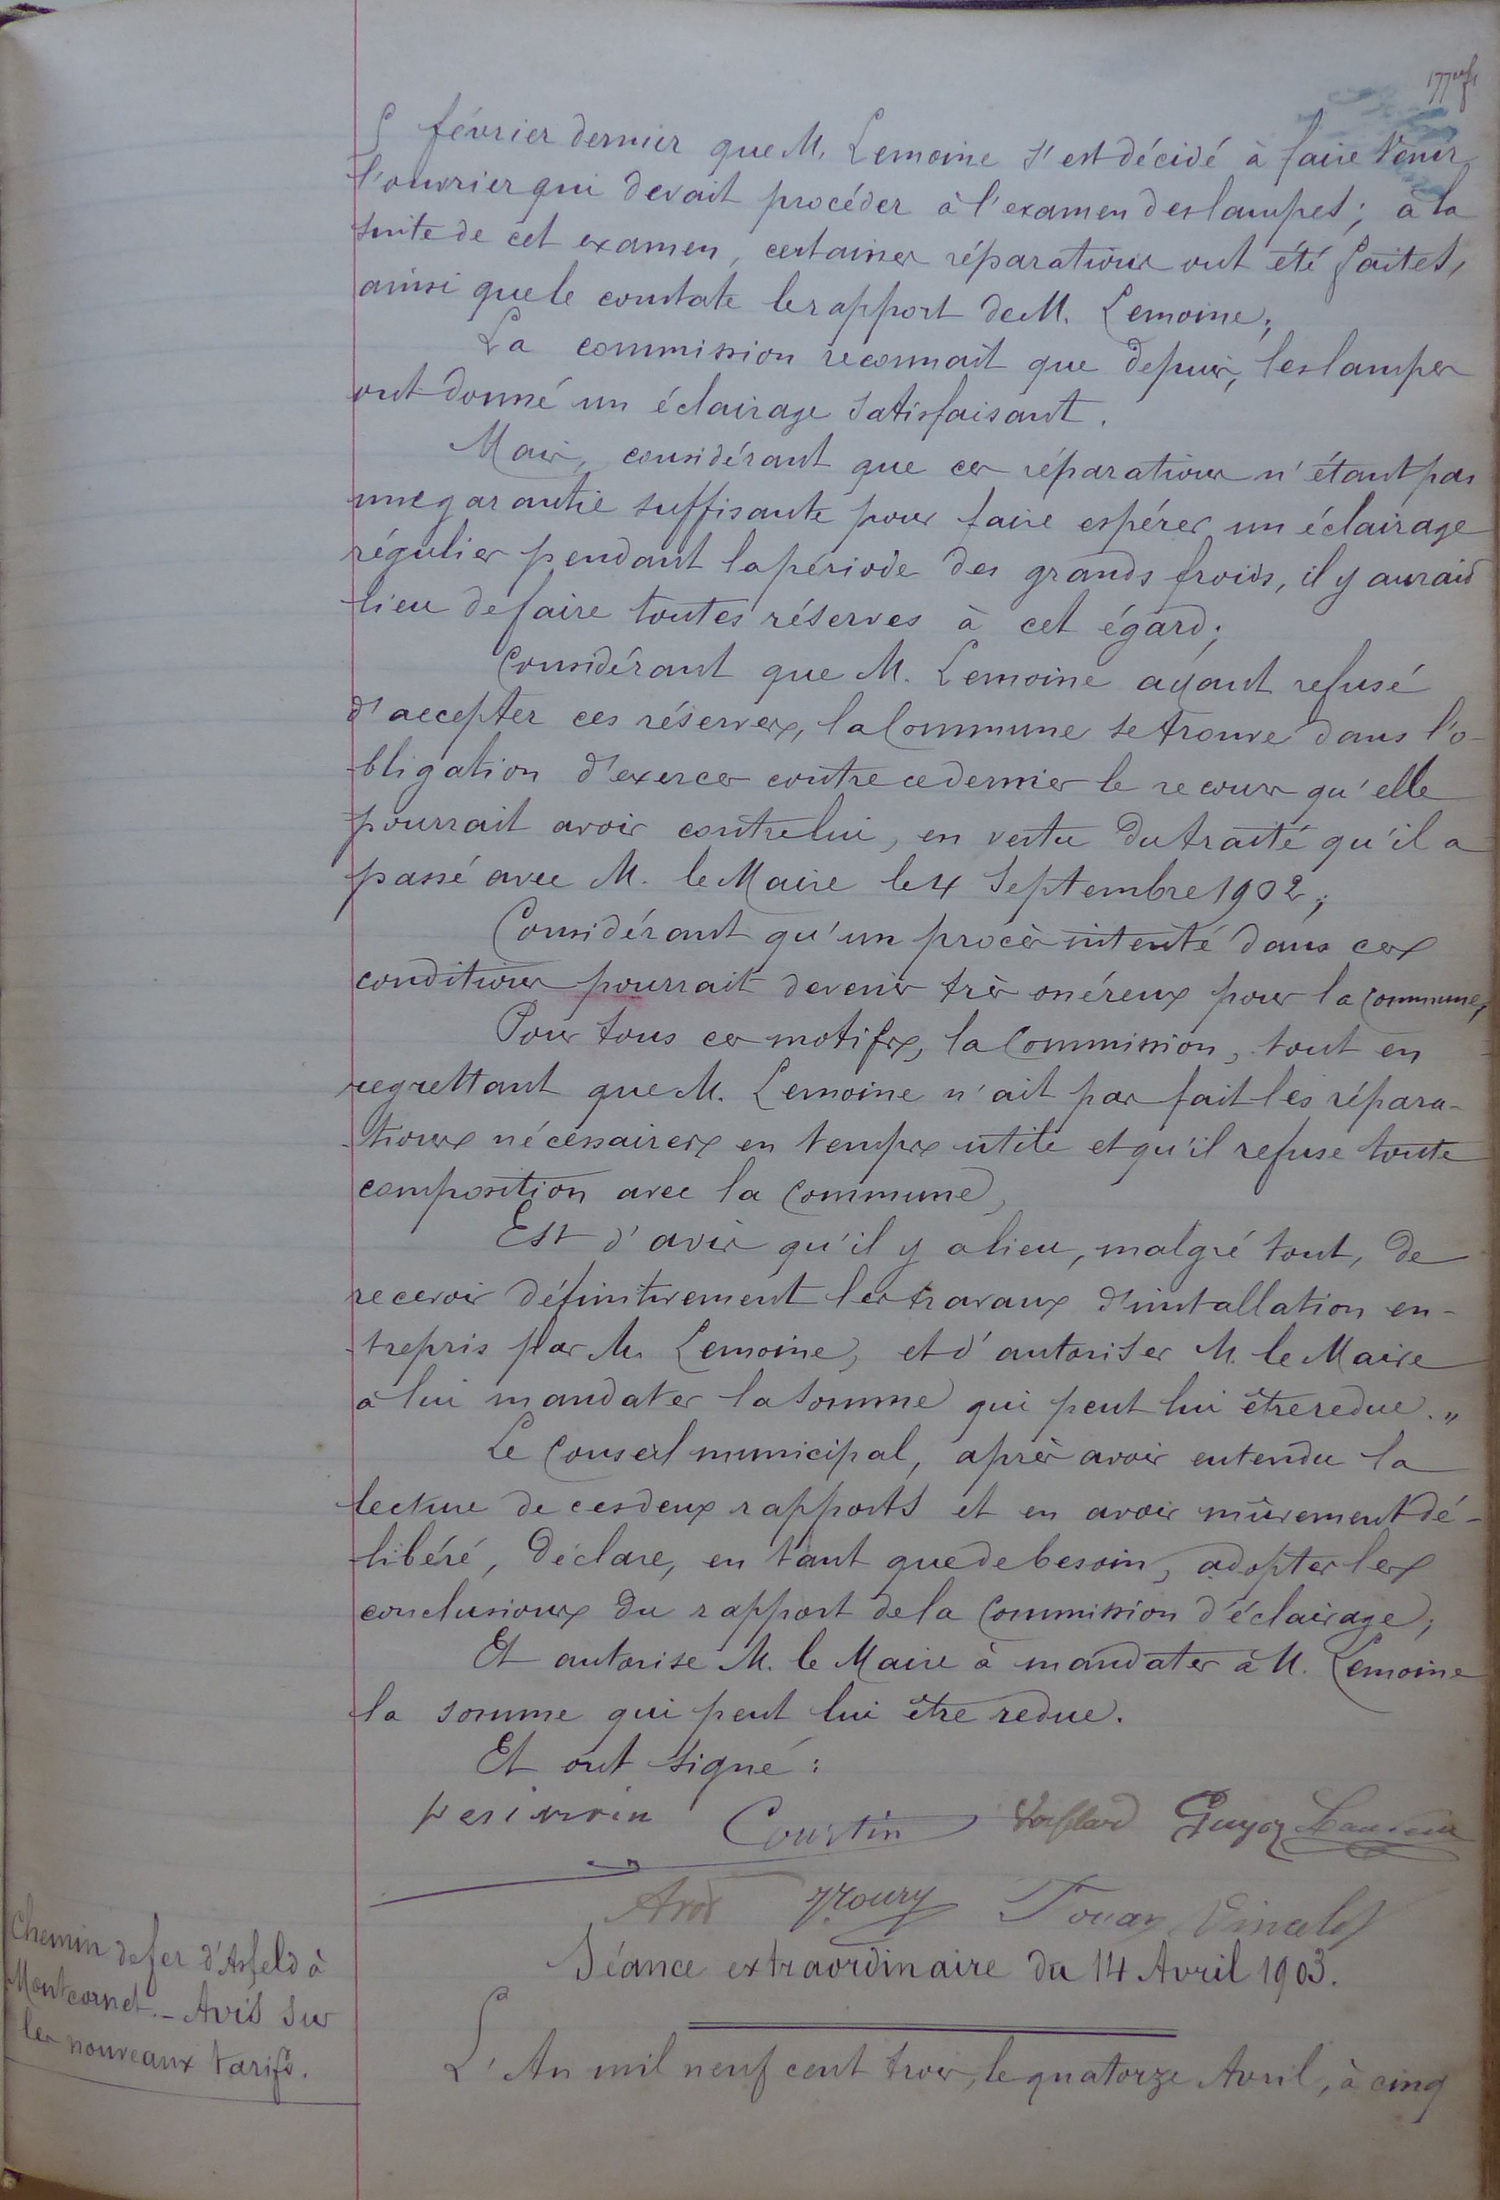 5 février dernier que M. Lemoine s'est décidé à faire venir
l'ouvrier qui devait procéder à l'examen des lampes ; à la
suite de cet examen, certaines réparations ont été faites,
ainsi que le constate le rapport de M. Lemoine ;
La commission reconnait que depuis, les lampes
ont donné un éclairage satisfaisant.
Mais, considérant que ces réparations n'étant pas
une garantie suffisante pour faire espérer un éclairage
régulier pendant la période des grands froids, il y aurait
lieu de faire toutes réserves à cet égard ;
Considérant que M. Lemoine ayant refusé
d'accepter ces réserves, la Commune se trouve dans l'o-
bligation d'exercer contre ce dernier le recours qu'elle
pourrait avoir contre lui, en vertu du traité qu'il a
passé avec M. le Maire le 4 Septembre 1902 ;
Considérant qu'un procès intenté dans ces
conditions pourrait devenir très onéreux pour la Commune,
Pour tous ces motifs, la Commission, tout en
regrettant que M. Lemoine n'ait pas fait les répara-
tions nécessaires en temps utile et qu'il refuse toute
composition avec la Commune,
Est d'avis qu'il y a lieu, malgré tout, de
recevoir définitivement les travaux d'installation en-
trepris par M. Lemoine, et d'autoriser M. le Maire
à lui mandater la somme qui peut lui être redue. "
Le Conseil municipal, après avoir entendu la
lecture de ces deux rapports et en avoir mûrement dé-
libéré, Déclare, en tant que de besoin, adopter les
conclusions du rapport de la Commission d'éclairage,
Et autorise M. le Maire à mandater à M. Lemoine
la somme qui peut lui être redue.
Et ont signé :
Courtin Guyot
Noury
Séance extraordinaire du 14 Avril 1903.
Chemin de fer d'Asfeld à
Montcornet. - Avis sur
les nouveaux tarifs.
L'An mil neuf cent trois, le quatorze Avril, à cinq